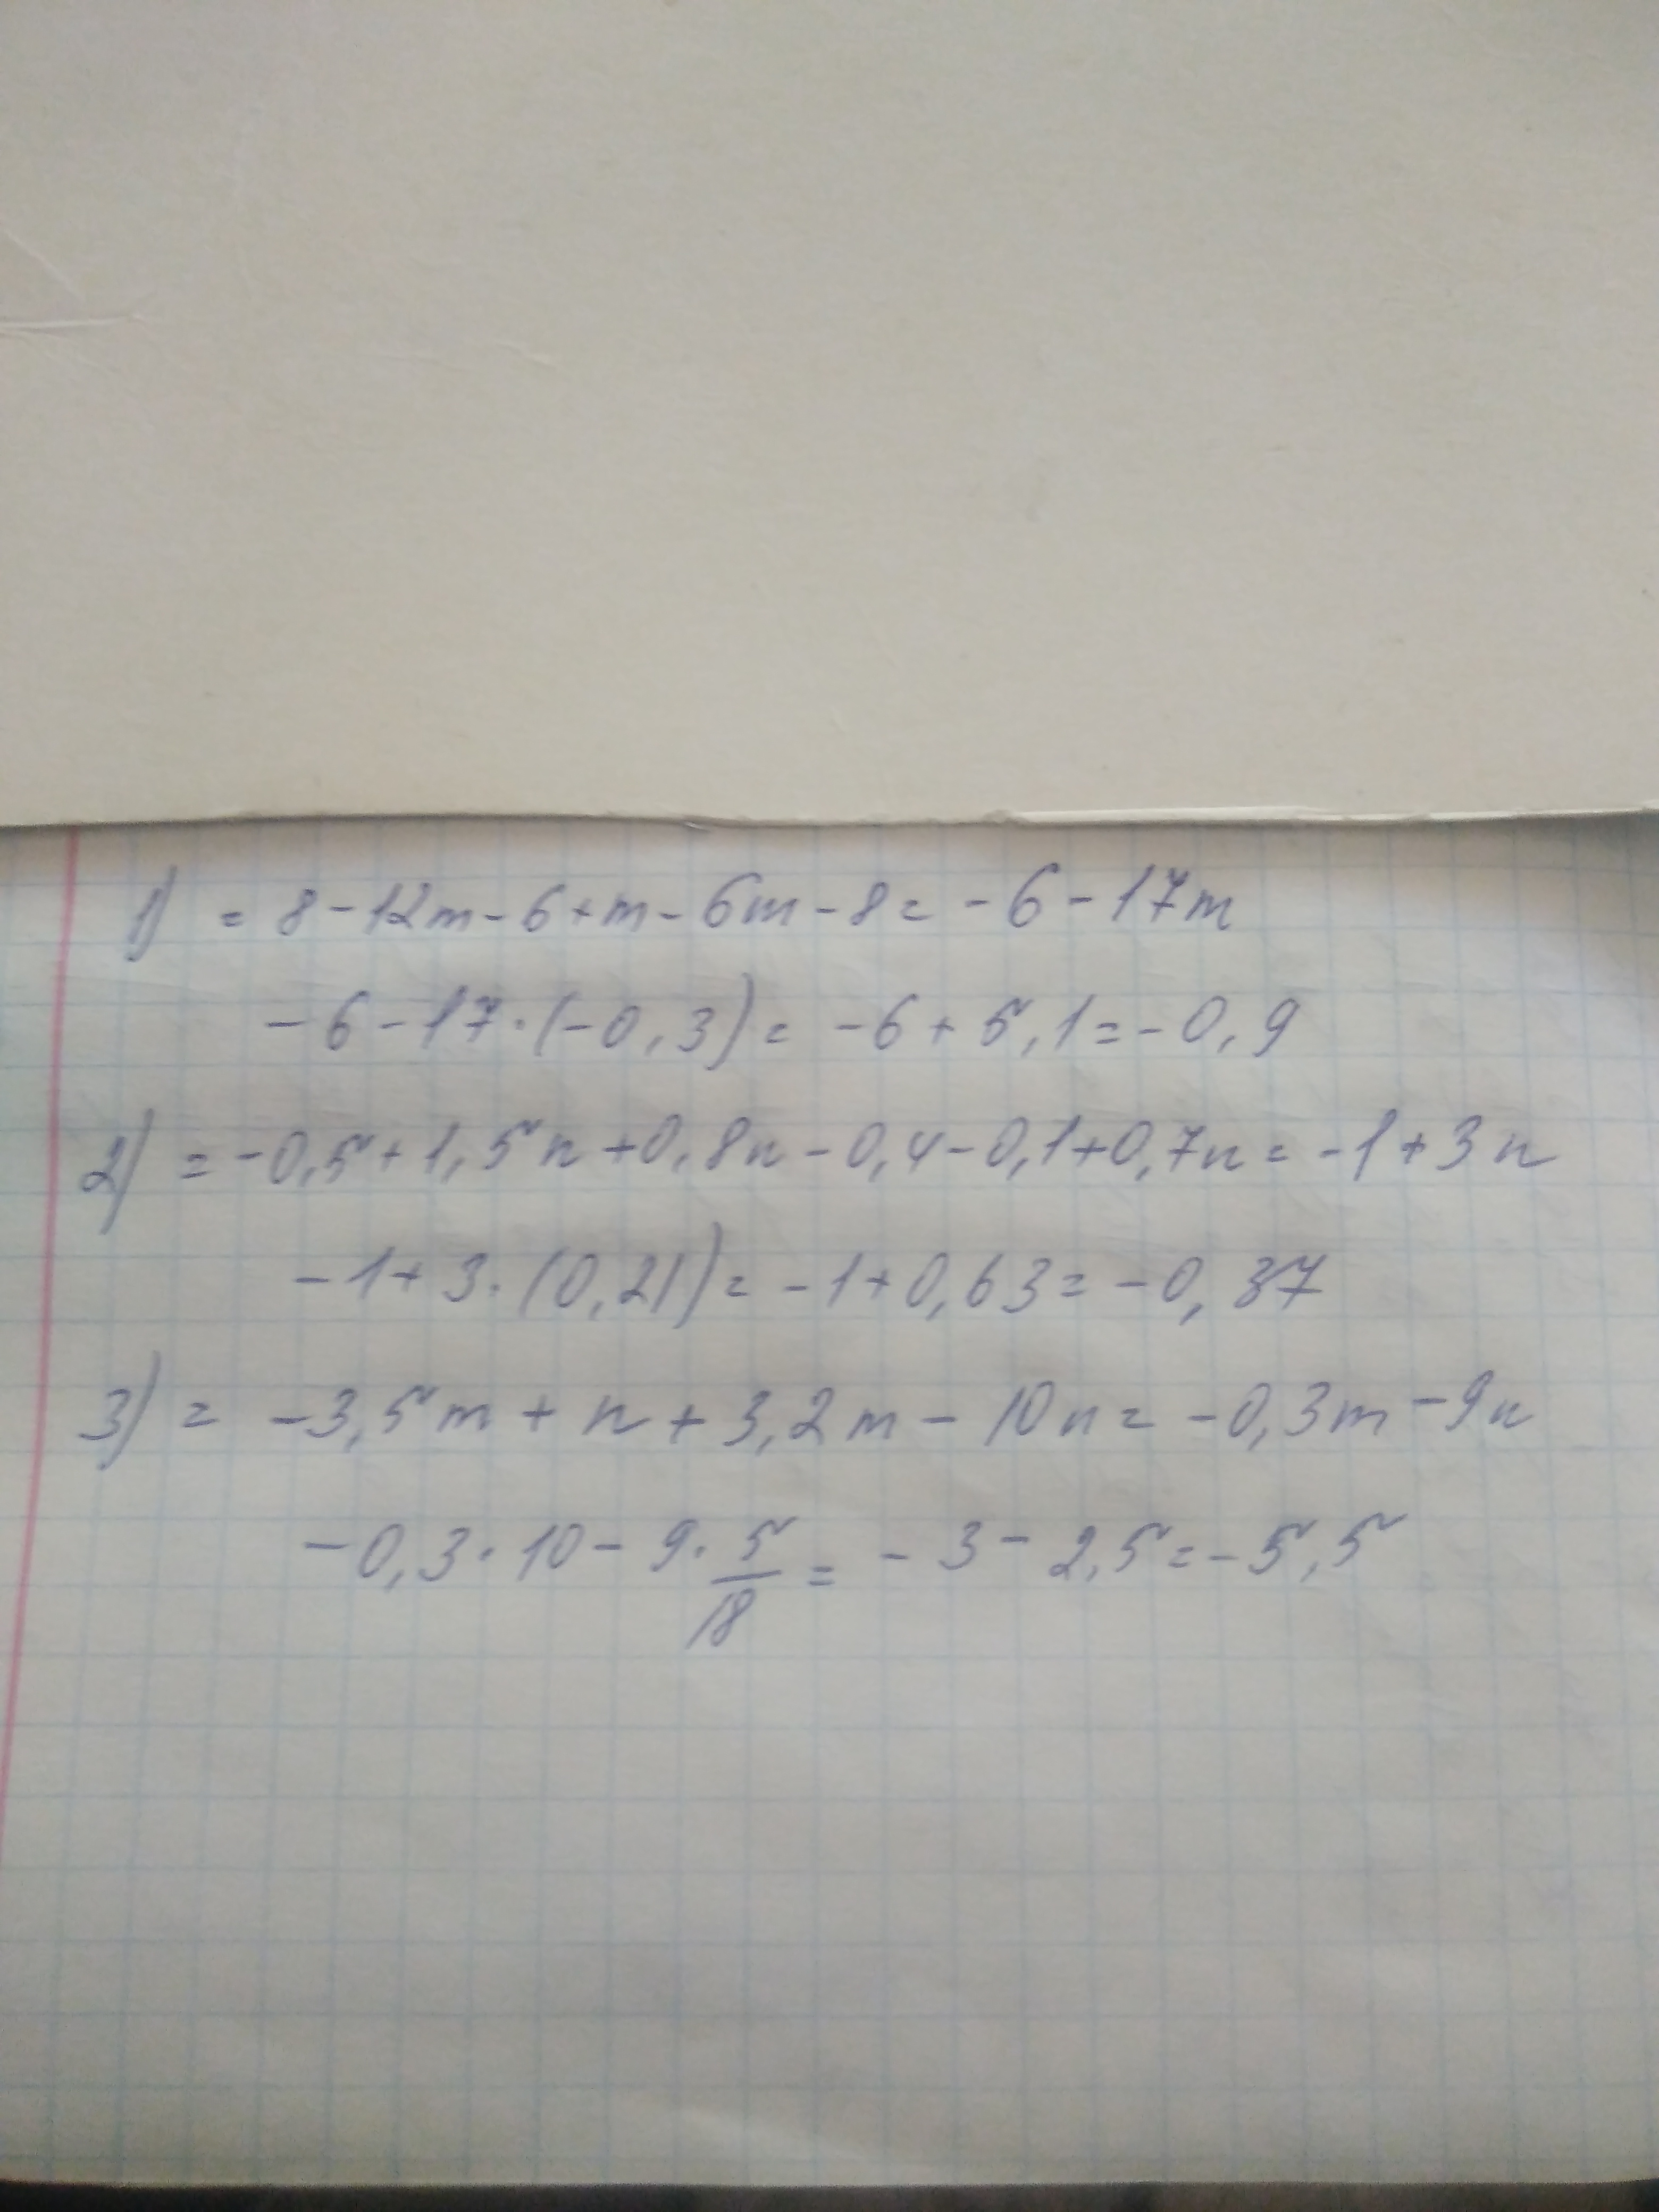 1) = 8-12m-6+m-6m-8= -6-17m
-6-17·(-0,3)= -6+5,1=-0,9
2) =-0,5+1,5n+0,8n-0,4-0,1+0,7n= -1+3n
-1+3·(0,21)= -1+0,63= -0,37
3) = -3,5m+n+3,2m-10n= -0,3m-9n
-0,3·10-9·5/18= -3-2,5=-5,5